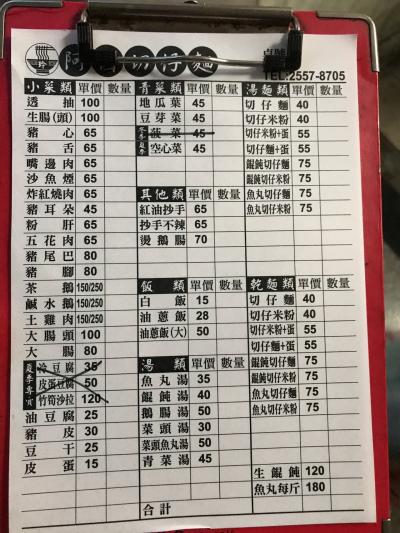 阿 切仔麵
TEL:2557-8705
小菜類 單價 數量
透抽 100
生腸(頭) 100
豬心 65
豬舌 65
嘴邊肉 65
沙魚煙 65
炸紅燒肉 65
豬耳朵 45
粉肝 65
五花肉 65
豬尾巴 80
豬腳 80
茶鵝 150/250
鹹水鵝 150/250
土雞肉 150/250
大腸頭 100
大腸 80
夏季專賣
冷豆腐 35
皮蛋豆腐 50
竹筍沙拉 120
油豆腐 25
豬皮 30
豆干 25
皮蛋 15
青菜類 單價 數量
地瓜葉 45
豆芽菜 45
冬季 菠菜 45
夏季 空心菜 45
其他類 單價 數量
紅油抄手 65
抄手不辣 65
燙鵝腸 70
飯類 單價 數量
白飯 15
油蔥飯 28
油蔥飯(大) 50
湯類 單價 數量
魚丸湯 35
餛飩湯 40
鵝腸湯 50
菜頭湯 30
菜頭魚丸湯 50
青菜湯 45
合計
湯麵類 單價 數量
切仔麵 40
切仔米粉 40
切仔米粉+蛋 55
切仔麵+蛋 55
餛飩切仔麵 75
餛飩切仔米粉 75
魚丸切仔麵 75
魚丸切仔米粉 75
乾麵類 單價 數量
切仔麵 40
切仔米粉 40
切仔米粉+蛋 55
切仔麵+蛋 55
餛飩切仔麵 75
餛飩切仔米粉 75
魚丸切仔麵 75
魚丸切仔米粉 75
生餛飩 120
魚丸每斤 180